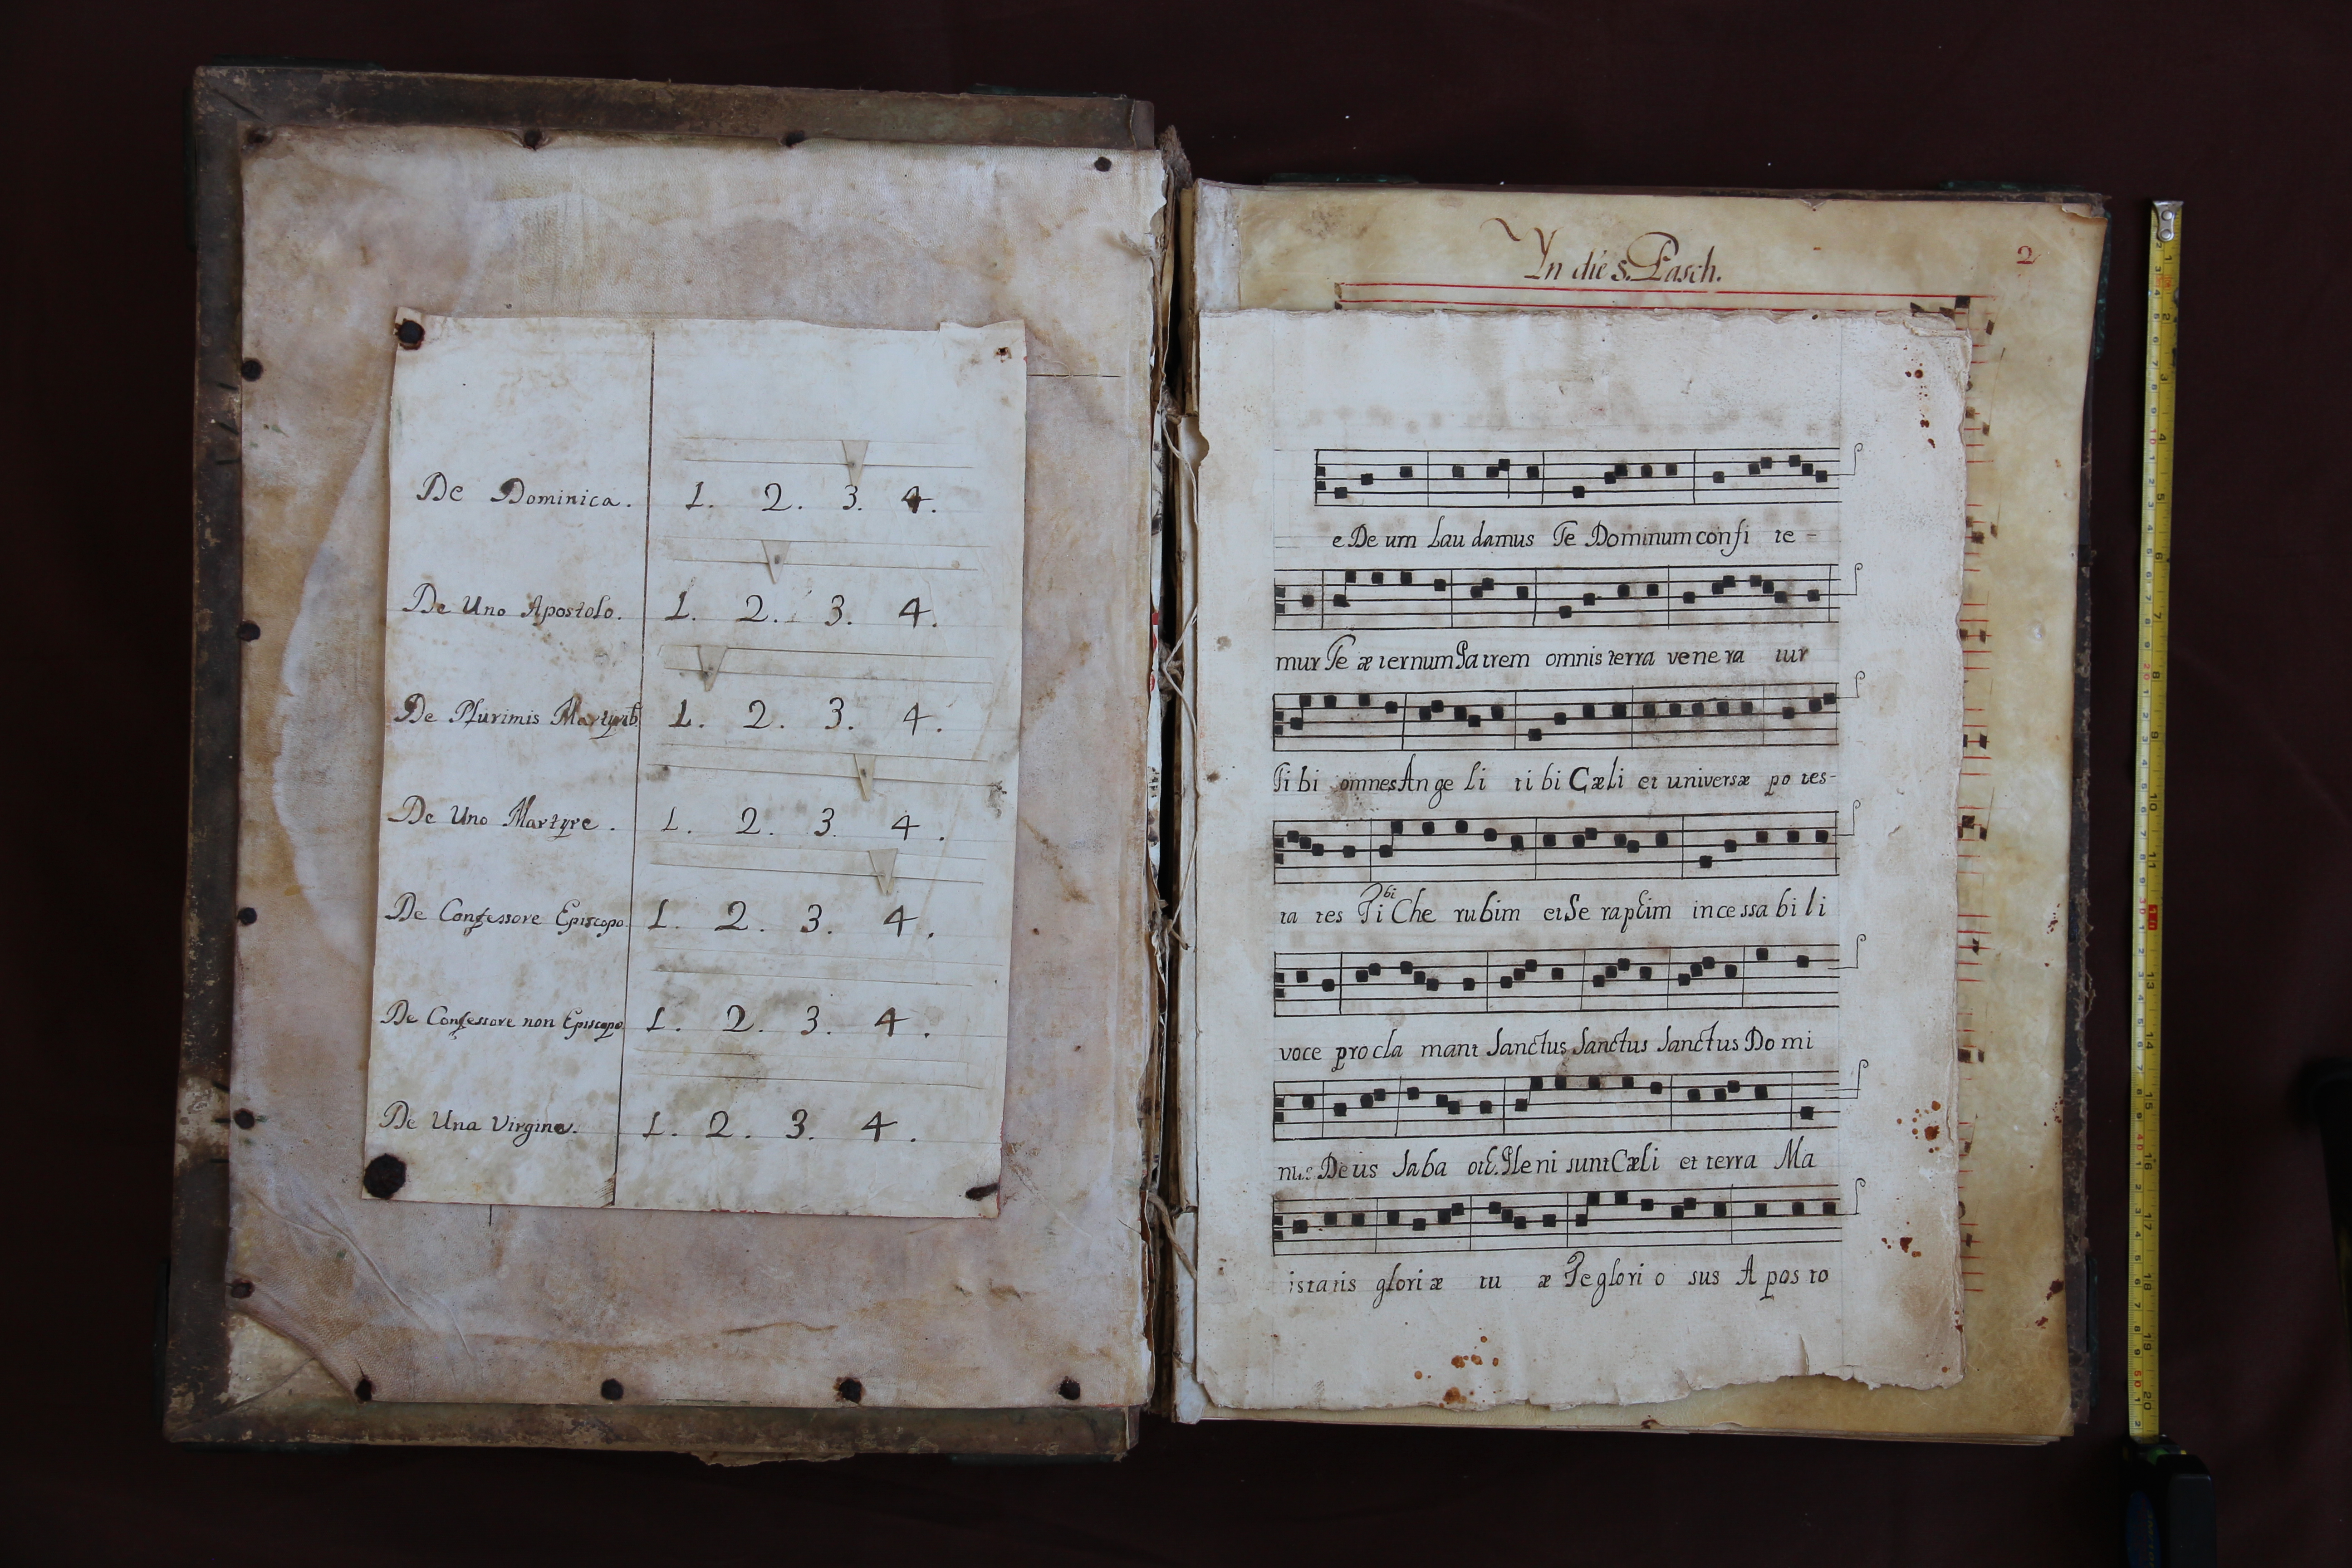 De Dominica. 1. 2. 3. 4.
De Uno Apostolo. 1. 2. 3. 4.
De Plurimis Martyrib 1. 2. 3. 4.
De Uno Martyre. 1. 2. 3. 4.
De Confessore Episcopo 1. 2. 3. 4.
De Confessore non Episcopo 1. 2. 3. 4.
De Una Virgine. 1. 2. 3. 4.
Yn die s. Pasch.
2
e De um Lau damus Te Dominum confi te-
mur Te æ ternum Pa trem omnis terra vene ra tur
Ti bi omnes An ge li ti bi Cæli et universæ po tes-
ta tes Ti bi Che rubim et Se raphim incessa bi li
voce procla mant Sanctus Sanctus Sanctus Do mi
nus Deus Saba oth. Pleni sunt Cæli et terra Ma
istatis gloriæ tu æ Te glori o sus A pos to